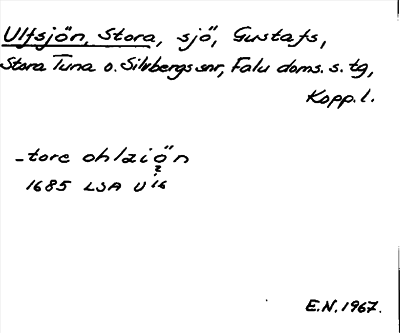 Ulfsjön, Stora, sjö, Gustafs,
Stora Tuna o. Silvbergs snr, Falu doms. s. tg,
Kopp. l.
-tore ohlziön
1685 LSA U 16
E.N. 1967.